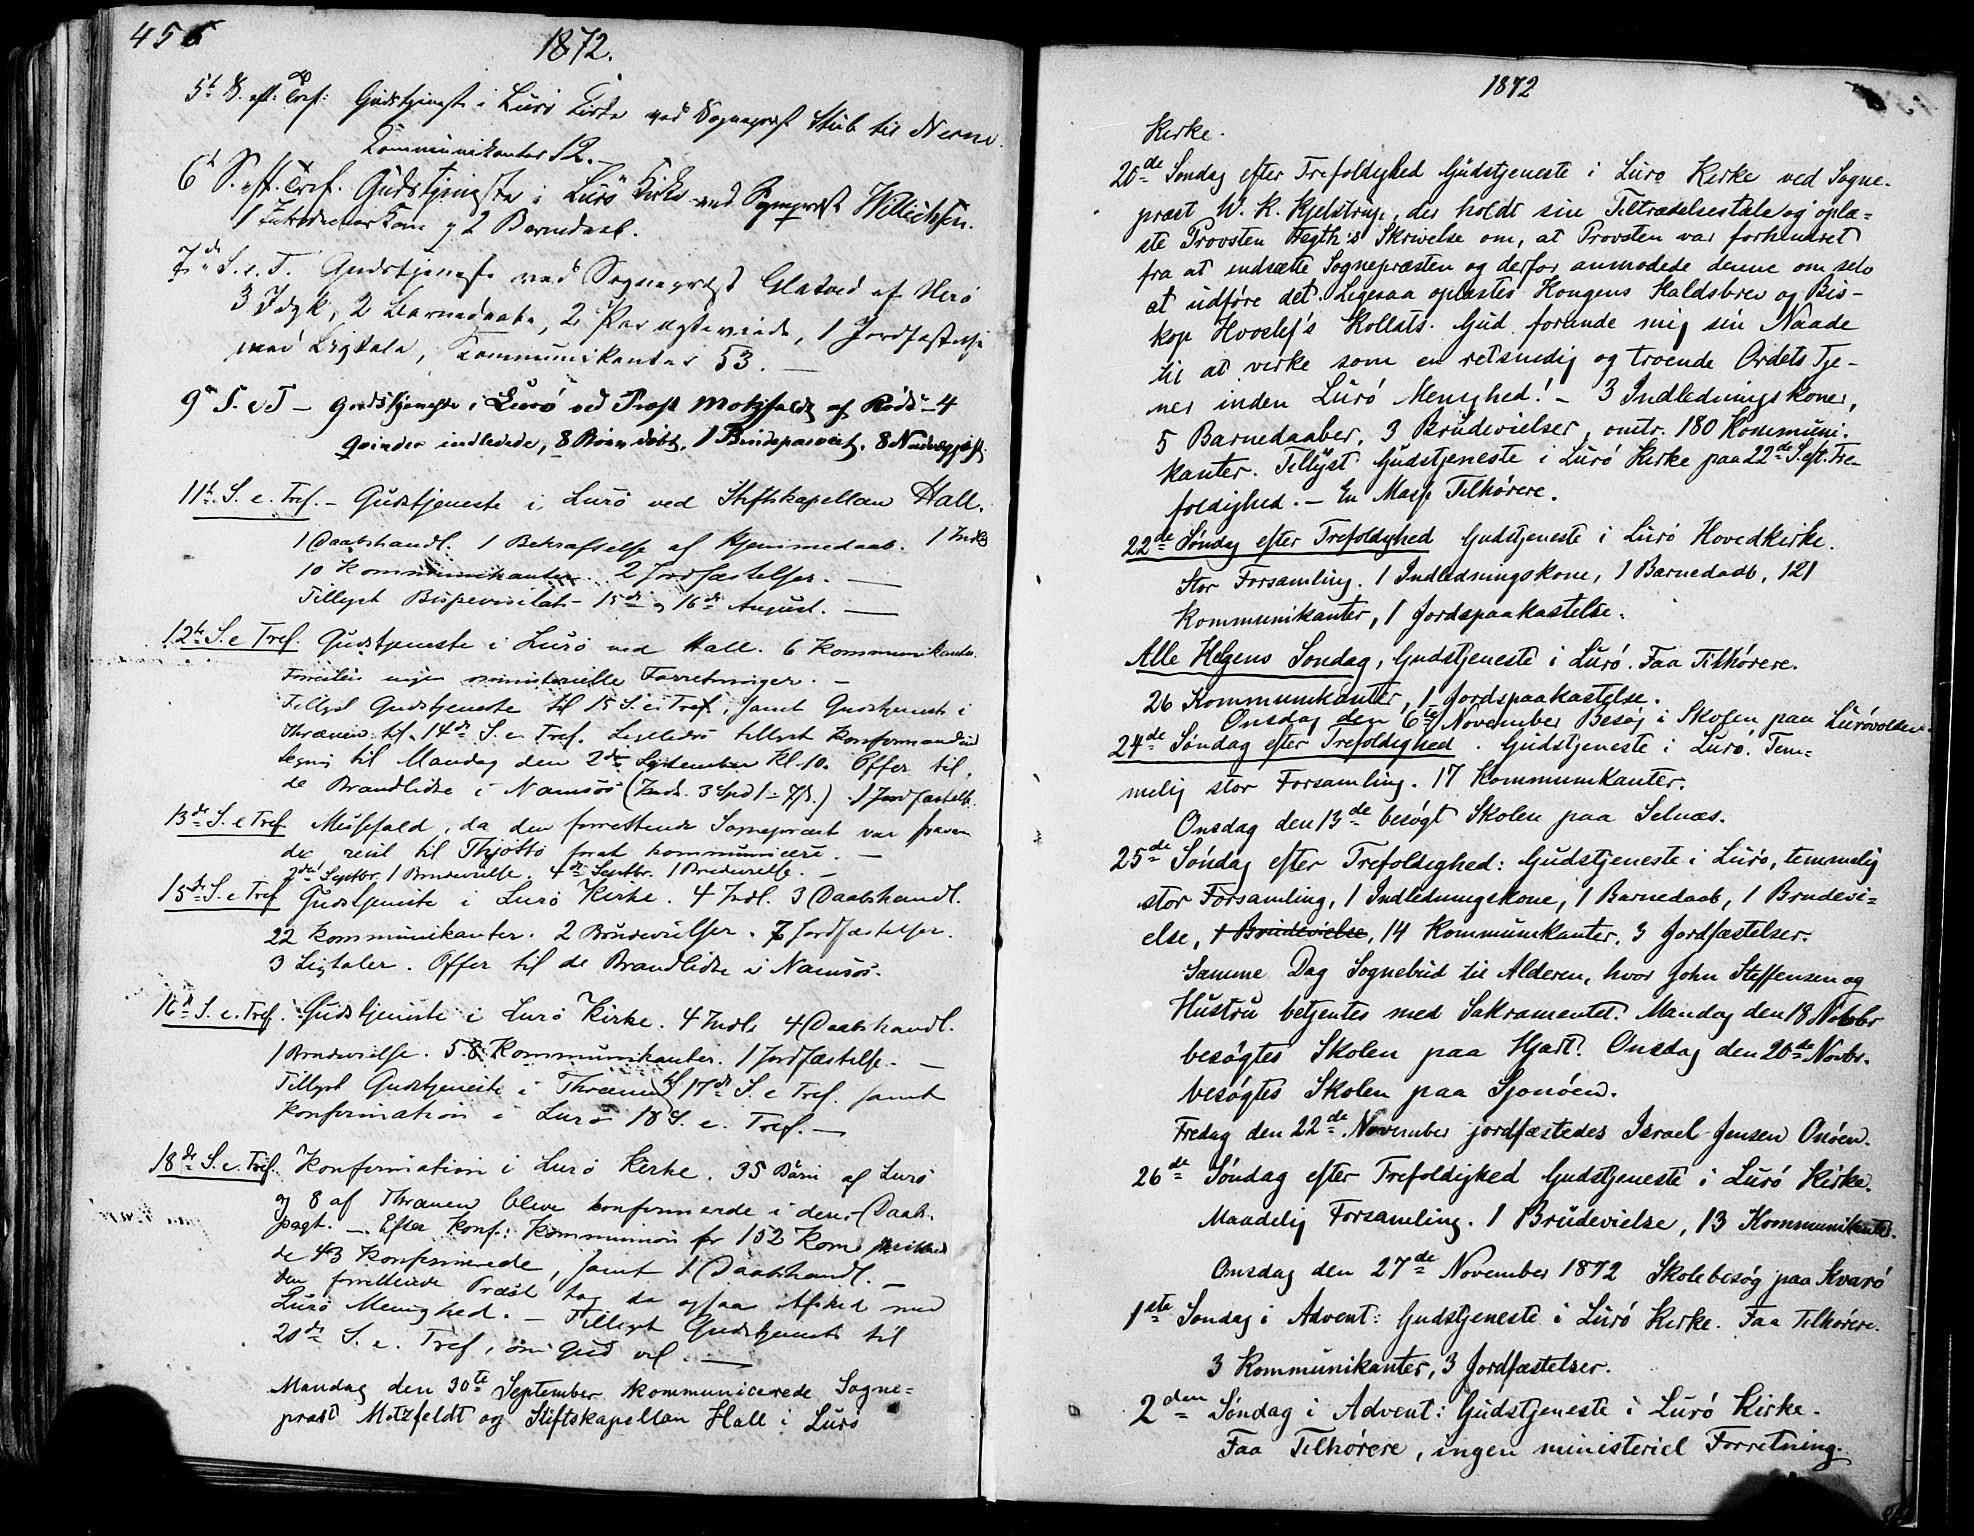 456
1872.
5t S. eft: Tref: Gudstjeneste i Lurö Kirke ved Sognepræst Stub til Nesne.
Communikanter 12.
6t S. eft. Tref. Gudstjeneste i Lurö Kirke ved Sognepræst
1 Introduceret Kone og 2 Barnedaab.
7de S. e. T. Gudstjeneste ved Sognepræst Glatved af Herö
3 Indgk, 2 Barnedaabe, 2 Par ægteviede, 1 Jordfæstelse
med Ligtale, Kommunikanter 53. —
9de S. e T — Gudstjeneste i Lurö ved Præst Motzfeldt af Rödö — 4
Qvinder indledede, 8 Börn döbt, 1 Brudepar viet, 8
11te S. e. Tref. — Gudstjeneste i Lurö ved Stiftskapellan Hall.
1 Daabshandl. 1 Bekræftelse af Hjemmedaab. 1 Indl
10 Kommunikanter. 2 Jordfæstelser. —
Tillyst Bispevisitats 15de og 16de August. —
12te S. e Tref. Gudstjeneste i Lurö ved Hall. 6 Kommunikanter.
ministerielle Forretninger. —
Tillyst Gudstjeneste til 15 S. e. Tref., samt Gudstjeneste i
Thrænen til 14de S. e Tref. Ligeledes tillyst Konfirmand
til Mandag den 2de September Kl. 10. Offer til
de Brandlidte i Namsos (Indk. 3 Spd 1 — ) 1 Jordfæstelse
13de S. e Tref. Messefald, da den forrettende Sognepræst var fravæ
de reist til Thjöttö forat kommunicere. —
2det Septbr. 1 Brudevielse. 4de Septbr. 1 Brudevielse. —
15de S. e Tref Gudstjeneste i Lurö Kirke. 4 Indl. 3 Daabshandl.
22 Kommunikanter. 2 Brudevielser. 7 Jordfæstelser.
3 Ligtaler. Offer til de Brandlidte i Namsos.
16de S. e. Tref. Gudstjeneste i Lurö Kirke. 4 Indl. 4 Daabshandl.
1 Brudevielse. 58 Kommunikanter. 1 Jordfæstelse. —
Tillyst Gudstjeneste i Thrænen til 17de S. e Tref. samt
Konfirmation i Lurö 18 S. e. Tref. —
18de S. e. Tref. Konfirmation i Lurö Kirke. 35 Börn af Lurö
og 8 af Thrænen bleve konfirmerede i deres Daabs-
pagt. — Efter Konf: Kommunion for 152 Kom
de 43 Konfirmerede, samt 1 Daabshandl. —
Den forrettende Præst tog da ogsaa Afsked med
Lurö Menighed. — Tillyst Gudstjeneste til
20de S. e. Tref, om Gud vil. —
Mandag den 30te September kommunicerede Sogne=
præst Motzfeldt og Stiftskapellan Hall i Lurö
1872
Kirke.
20de Söndag efter Trefoldighed Gudstjeneste i Lurö Kirke ved Sogne-
præst W. K. Kjelstrup, der holdt sin Tiltrædelsestale og oplæ=
ste Provsten Hegth's Skrivelse om, at Provsten var forhindret
fra at indsætte Sognepræsten og derfor anmodede denne om selv
at udföre det. Ligesaa oplæstes Kongens Kaldsbrev og Bis-
kop Hvoslef's Kollats. Gud forunde mig sin Naade
til at virke som en retsindig og troende Ordets Tje-
ner inden Lurö Menighed! — 3 Indledningskoner,
5 Barnedaaber, 3 Brudevielser, omtr. 180 Kommuni-
kanter. Tillyst Gudstjeneste i Lurö Kirke paa 22de S. eft. Tre-
foldighed. — En Masse Tilhörere.
22de Söndag efter Trefoldighed Gudstjeneste i Lurö Hovedkirke.
Stor Forsamling. 1 Indledningskone, 1 Barnedaab, 121
Kommunikanter, 1 Jordspaakastelse.
Alle Helgens Söndag, Gudstjeneste i Lurö. Faa Tilhörere.
26 Kommunikanter, 1 Jordspaakastelse.
Onsdag den 6te November Besög i Skolen paa Lurövolden.
24de Söndag efter Trefoldighed. Gudstjeneste i Lurö. Tem=
melig stor Forsamling. 17 Kommunikanter.
Onsdag den 13de besögt Skolen paa Selnæs.
25de Söndag efter Trefoldighed: Gudstjeneste i Lurö, temmelig
stor Forsamling, 1 Indledningskone, 1 Barnedaab, 1 Brudevi=
else, 1 Brudevielse, 14 Kommunikanter, 3 Jordfæstelser.
Samme Dag Sognebud til Alderen, hvor John Steffensen og
Hustru betjentes med Sakramentet. Mandag den 18 Novbr
besögtes Skolen paa Hjart. Onsdag den 20de Novbr.
besögtes Skolen paa Sjonöen.
Fredag den 22de November jordfæstedes Israel Jensen Onöen.
26de Söndag efter Trefoldighed Gudstjeneste i Lurö Kirke.
Maadelig Forsamling. 1 Brudevielse, 13 Kommunikanter.
Onsdag den 27de November 1872 Skolebesög paa Kvarö
1ste Söndag i Advent: Gudstjeneste i Lurö Kirke. Faa Tilhörere.
3 Kommunikanter, 3 Jordfæstelser.
2den Söndag i Advent: Gudstjeneste i Lurö Kirke.
Faa Tilhörere, ingen ministeriel Forretning.